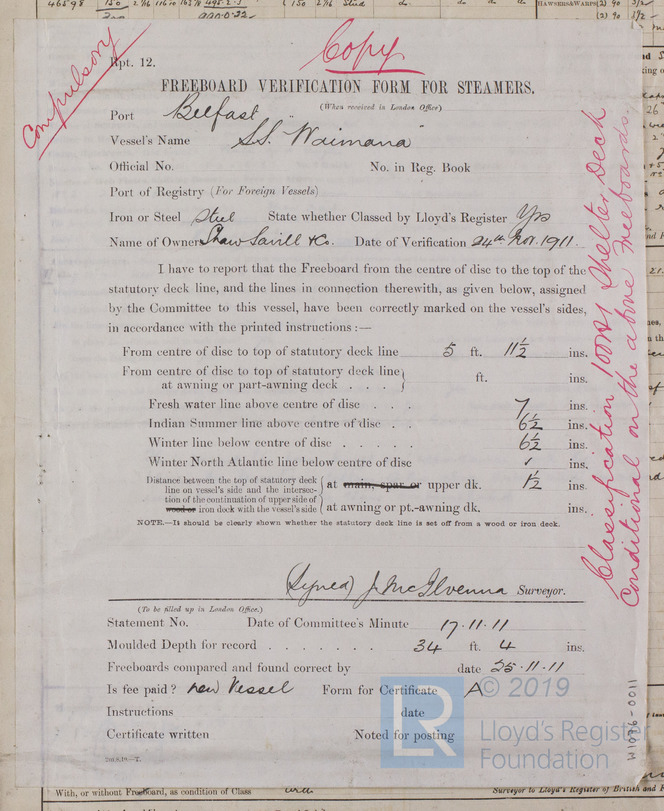 46598
HAWSERS & WARPS
Copy
Compulsory
Rpt. 12.
FREEBOARD VERIFICATION FORM FOR STEAMERS.
(When received in London Office)
Port Belfast
Vessel's Name S.S. "Waimana"
Official No. No. in Reg. Book
Port of Registry (For Foreign Vessels)
Iron or Steel Steel State whether Classed by Lloyd's Register Yes
Name of Owner Shaw Savill & Co. Date of Verification 24th Nov. 1911.
I have to report that the Freeboard from the centre of disc to the top of the
statutory deck line, and the lines in connection therewith, as given below, assigned
by the Committee to this vessel, have been correctly marked on the vessel's sides,
in accordance with the printed instructions :—
From centre of disc to top of statutory deck line 5 ft. 11½ ins.
From centre of disc to top of statutory deck line
at awning or part-awning deck . . . ft. ins.
Fresh water line above centre of disc . . . 7 ins.
Indian Summer line above centre of disc . . 6½ ins.
Winter line below centre of disc . . . . . 6½ ins.
Winter North Atlantic line below centre of disc ✓ ins.
Distance between the top of statutory deck
line on vessel's side and the intersec-
tion of the continuation of upper side of
wood or iron deck with the vessel's side
at main, spar or upper dk. 1½ ins.
at awning or pt.-awning dk. ins.
NOTE.—It should be clearly shown whether the statutory deck line is set off from a wood or iron deck.
(Signed) J. McIlvenna Surveyor.
(To be filled up in London Office.)
Statement No. Date of Committee's Minute 17.11.11
Moulded Depth for record . . . . . . . 34 ft. 4 ins.
Freeboards compared and found correct by date 25.11.11
Is fee paid ? New Vessel Form for Certificate A
Instructions date
Certificate written Noted for posting
Classification 100A1 Shelter Deck
Conditional on the above Freeboards.
LR
© 2019
Lloyd's Register
Foundation
W1096-0011
With, or without Freeboard, as condition of Class
Surveyor to Lloyd's Register of British and F